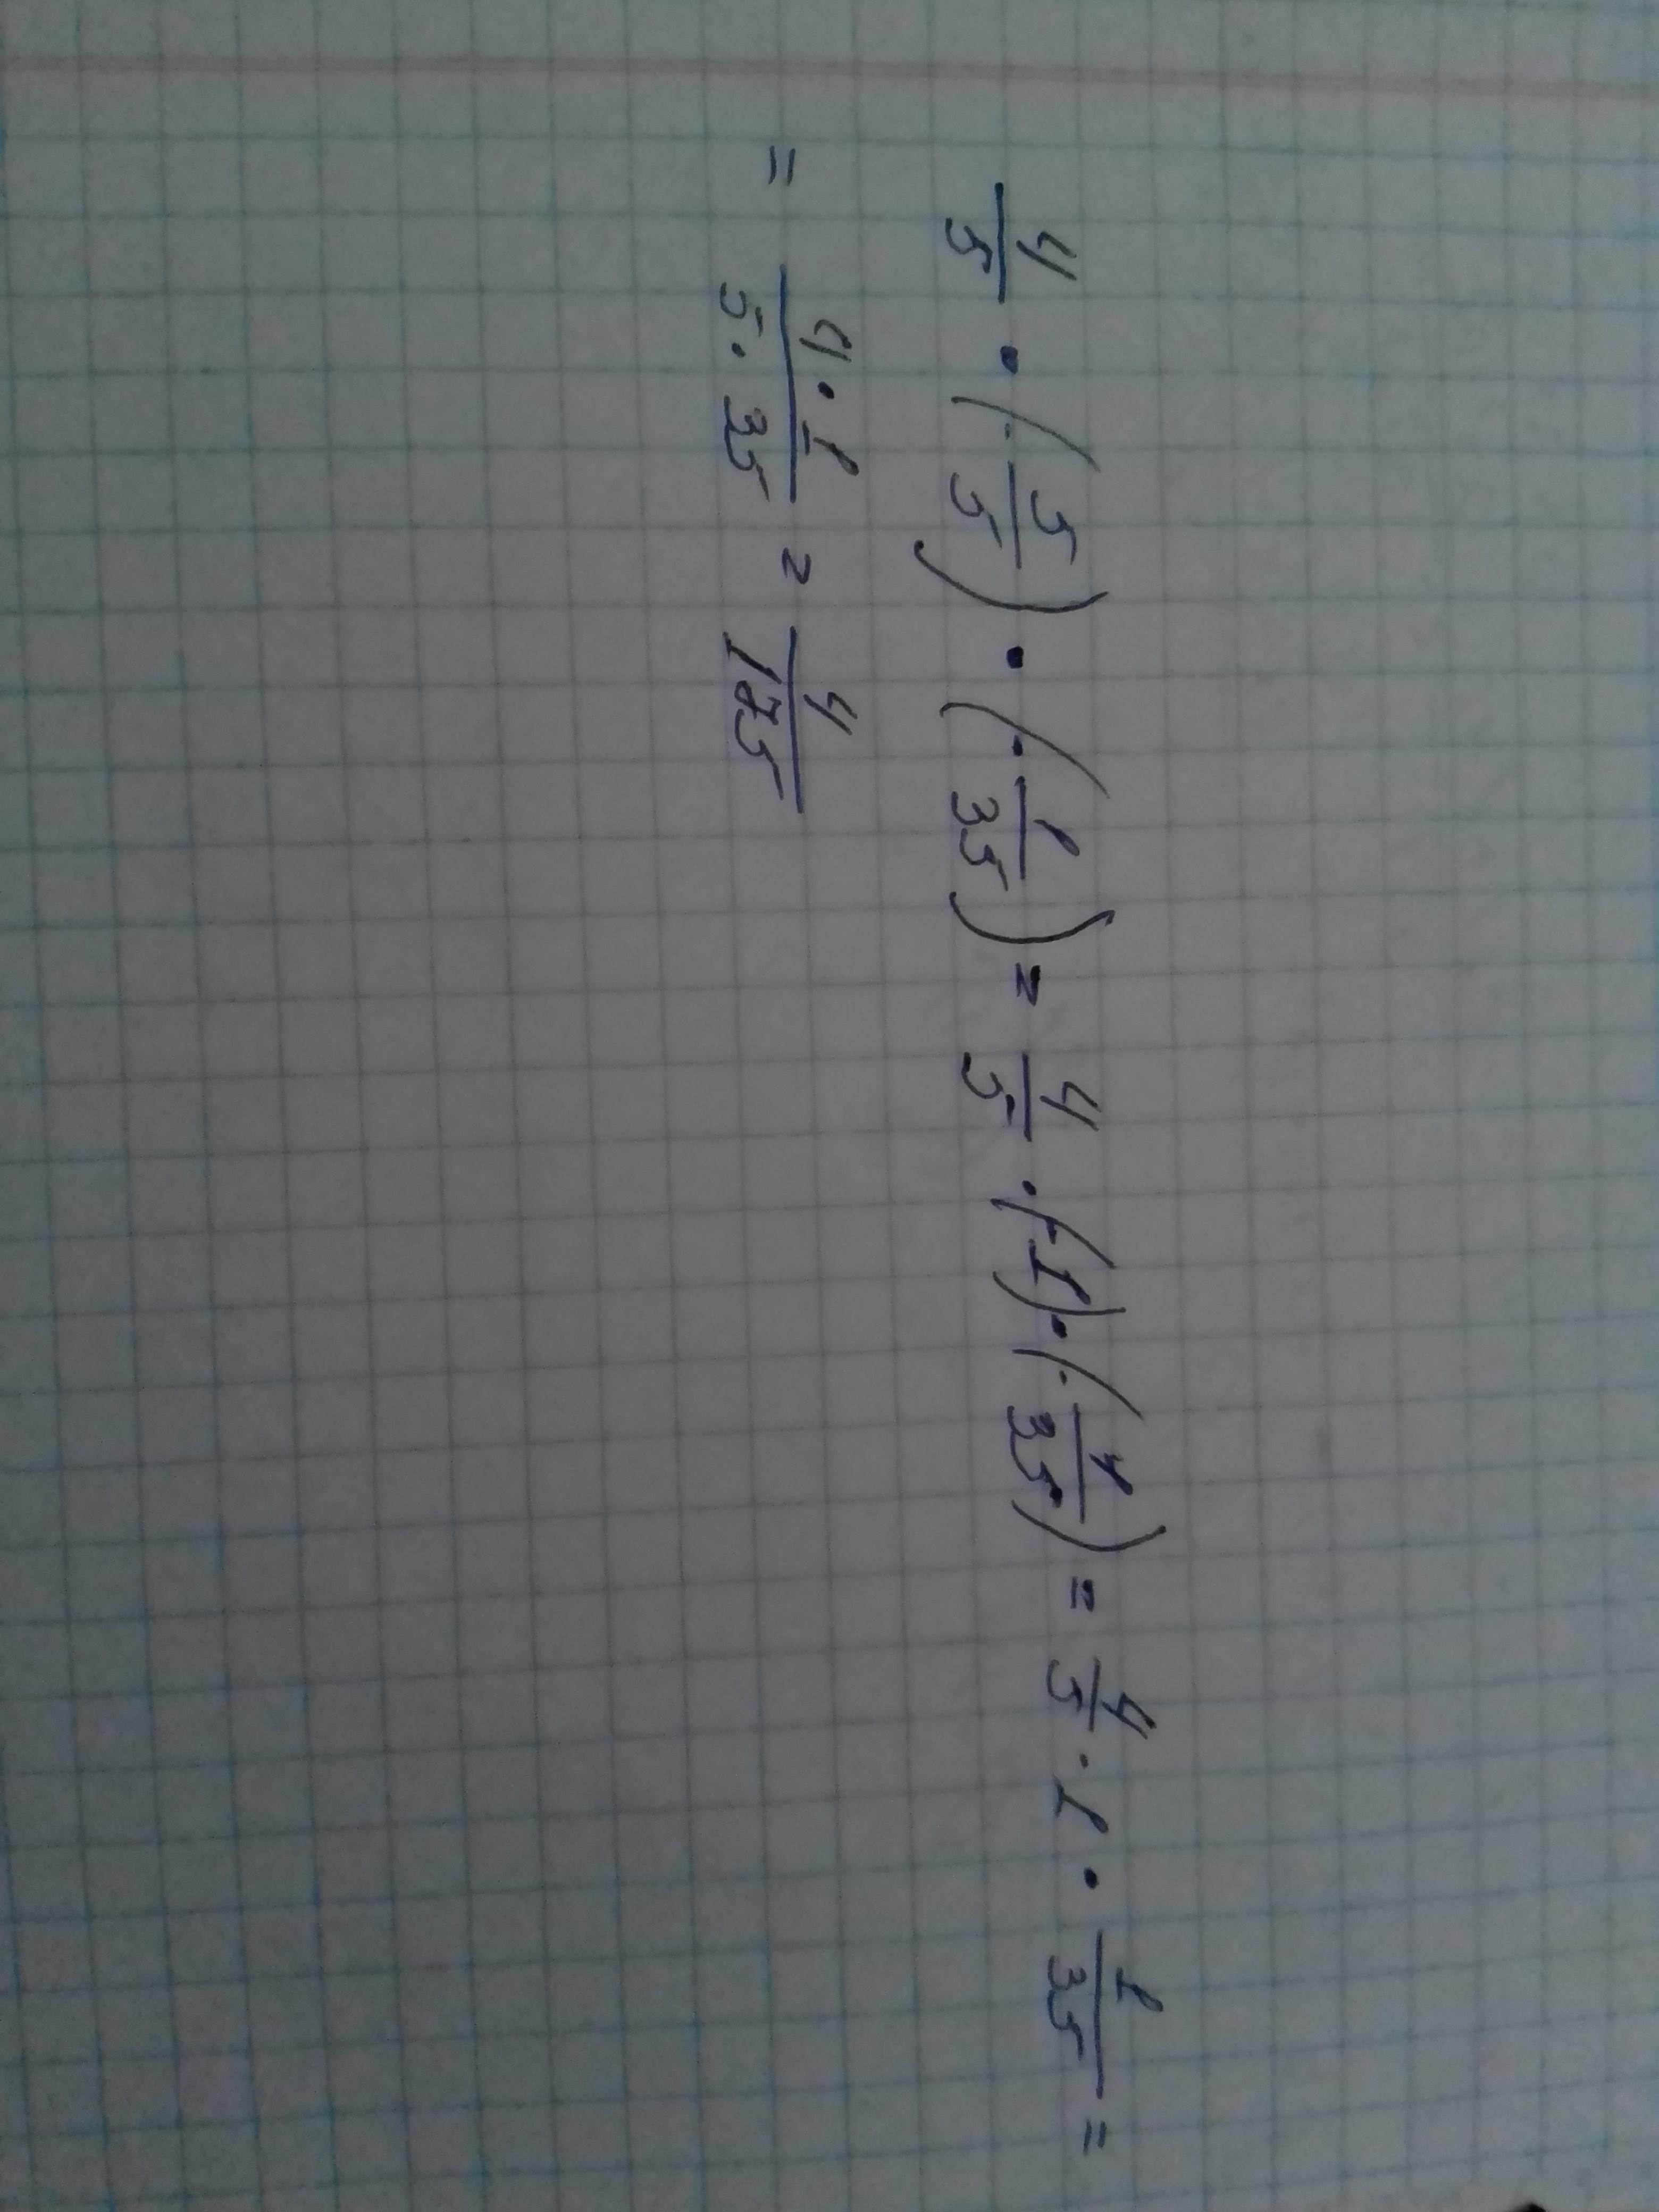 4/5 · (-5/5) · (-1/35) = 4/5 · (-1) · (-1/35) = 4/5 · 1 · 1/35 =
= (4 · 1)/(5 · 35) = 4/175